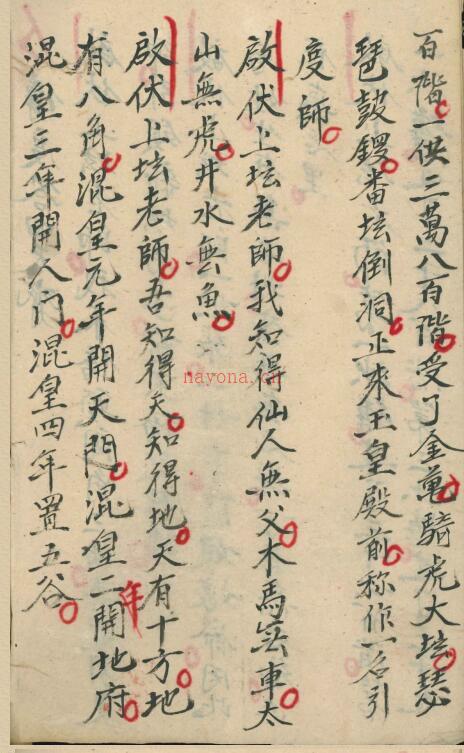 百階一供三萬八百階受了金萬騎虎大坛瑟
琶鼓鑼番坛倒洞正來玉皇殿前称作一名引
度師
啟伏上坛老師我知得仙人無父木馬無車太
山無虎井水無魚
啟伏上坛老師吾知得天知得地天有十方地
有八角混皇元年開天門混皇二年開地府
混皇三年開人门混皇四年置五谷
nayona.cn